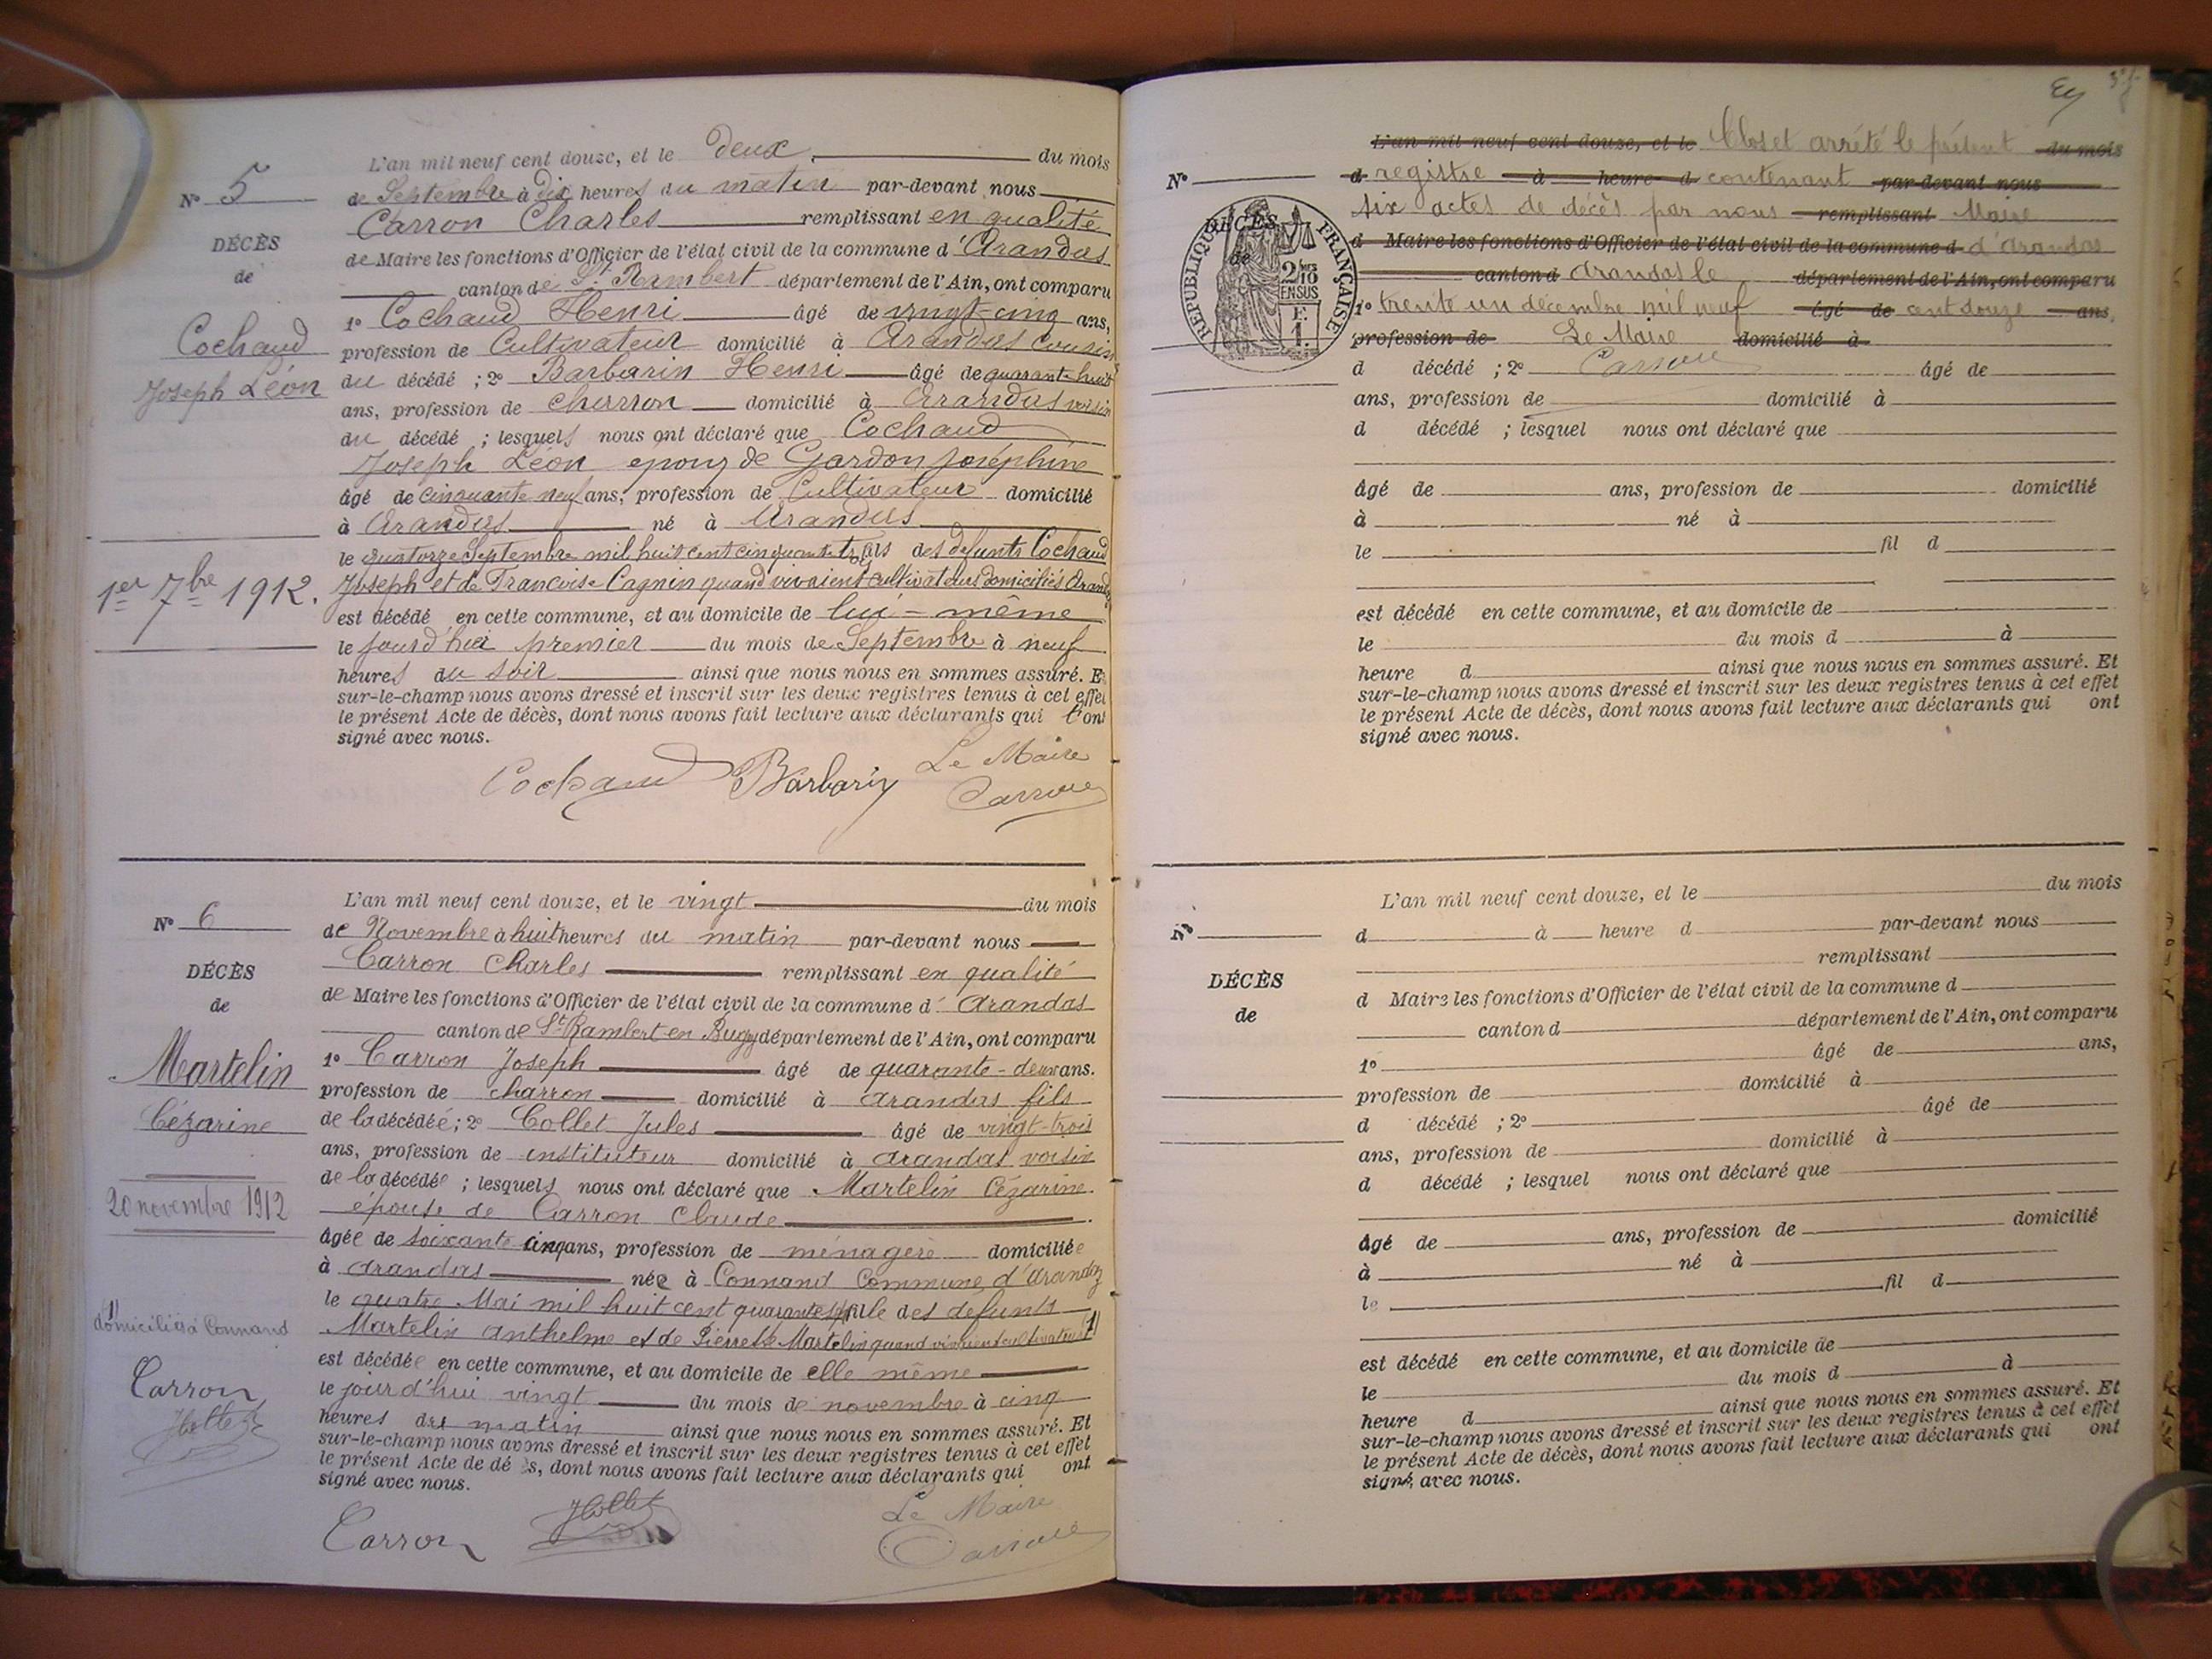 L'an mil neuf cent douze, et le deux du mois
N° 5
de Septembre à dix heures du matin par-devant nous
Carron Charles remplissant en qualité
DÉCÈS
de Maire les fonctions d'Officier de l'état civil de la commune d'Arandas
de
canton de St Rambert département de l'Ain, ont comparu
1° Cochaud Henri âgé de vingt-cinq ans,
Cochaud
profession de Cultivateur domicilié à Arandas cousin
Joseph Léon
du décédé ; 2° Barbarin Henri âgé de quarante-huit
ans, profession de charron domicilié à Arandas voisin
du décédé ; lesquels nous ont déclaré que Cochaud
Joseph Léon epoux de Gardon Joséphine
âgé de cinquante neuf ans, profession de Cultivateur domicilié
à Arandas né à Arandas
le quatorze Septembre mil huit cent cinquante trois fils des defunts Cochaud
1er 7bre 1912.
Joseph et de Francoise Cagnin quand vivaient cultivateurs domiciliés Arandas
est décédé en cette commune, et au domicile de lui-même
le jourd'hui premier du mois de Septembre à neuf
heures du soir ainsi que nous nous en sommes assuré. Et
sur-le-champ nous avons dressé et inscrit sur les deux registres tenus à cet effet
le présent Acte de décès, dont nous avons fait lecture aux déclarants qui l'ont
signé avec nous.
Cochaud Barbarin Le Maire
Carron
L'an mil neuf cent douze, et le vingt du mois
N° 6
de Novembre à huit heures du matin par-devant nous
Carron Charles remplissant en qualité
DÉCÈS
de Maire les fonctions d'Officier de l'état civil de la commune d' Arandas
de
canton de St Rambert en Bugey département de l'Ain, ont comparu
1° Carron Joseph âgé de quarante-deux ans.
Martelin
profession de charron domicilié à Arandas fils
Cézarine
de la décédée ; 2° Collet Jules âgé de vingt-trois
ans, profession de instituteur domicilié à Arandas voisin
de la décédée ; lesquels nous ont déclaré que Martelin Cézarine
20 novembre 1912
épouse de Carron Claude
âgée de soixante cinq ans, profession de ménagère domiciliée
à Arandas née à Connand Commune d'Arandas
le quatre Mai mil huit cent quarante sept fille des defunts
(1)
domiciliés à Connand
Martelin Anthelme et de Pierrette Martelin quand vivaient cultivateurs (1)
est décédée en cette commune, et au domicile de elle même
Carron
le jourd'hui vingt du mois de novembre à cinq
JCollet
heures du matin ainsi que nous nous en sommes assuré. Et
sur-le-champ nous avons dressé et inscrit sur les deux registres tenus à cet effet
le présent Acte de dé s, dont nous avons fait lecture aux déclarants qui ont
signé avec nous.
Carron JCollet Le Maire
Carron
L'an mil neuf cent douze, et le Clos et arrêté le présent du mois
N°
d registre à heure d contenant par-devant nous
six actes de décès par nous remplissant Maire
DÉCÈS
RÉPUBLIQUE FRANÇAISE
2/10 EN SUS
F. 1.
d Maire les fonctions d'Officier de l'état civil de la commune d d'Arandas
de
canton d Arandas le département de l'Ain, ont comparu
1° trente un décembre mil neuf âgé de cent douze ans,
profession de Le Maire domicilié à
d décédé ; 2° Carron âgé de
ans, profession de domicilié à
d décédé ; lesquel nous ont déclaré que
âgé de ans, profession de domicilié
à né à
le fil d
est décédé en cette commune, et au domicile de
le du mois d à
heure d ainsi que nous nous en sommes assuré. Et
sur-le-champ nous avons dressé et inscrit sur les deux registres tenus à cet effet
le présent Acte de décès, dont nous avons fait lecture aux déclarants qui ont
signé avec nous.
L'an mil neuf cent douze, et le du mois
N°
d à heure d par-devant nous
remplissant
DÉCÈS
d Maire les fonctions d'Officier de l'état civil de la commune d
de
canton d département de l'Ain, ont comparu
1° âgé de ans,
profession de domicilié à
d décédé ; 2° âgé de
ans, profession de domicilié à
d décédé ; lesquel nous ont déclaré que
âgé de ans, profession de domicilié
à né à
le fil d
est décédé en cette commune, et au domicile de
le du mois d à
heure d ainsi que nous nous en sommes assuré. Et
sur-le-champ nous avons dressé et inscrit sur les deux registres tenus à cet effet
le présent Acte de décès, dont nous avons fait lecture aux déclarants qui ont
signé avec nous.